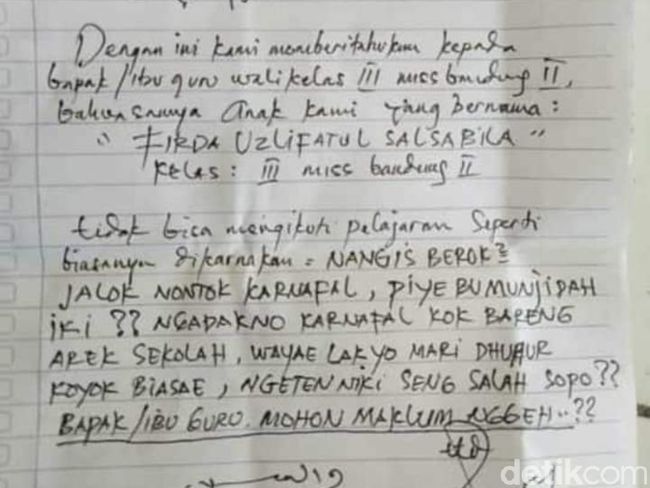 Dengan ini kami memberitahukan kepada
bapak/ibu guru walikelas III miss bandung II,
bahwasanya anak kami yang bernama :
"FIRDA UZLIFATUL SALSABILA"
Kelas : III miss bandung II
tidak bisa mengikuti pelajaran seperti
biasanya dikarnakan = NANGIS BEROK²
JALOK NONTOK KARNAFAL, PIYE BU MUNJIDAH
IKI ?? NGADAKNO KARNAFAL KOK BARENG
AREK SEKOLAH, WAYAE LAK YO MARI DHUHUR
KOYOK BIASAE, NGETEN NIKI SENG SALAH SOPO ??
BAPAK/IBU GURU. MOHON MAKLUM NGGEH..??
ttd
detikcom